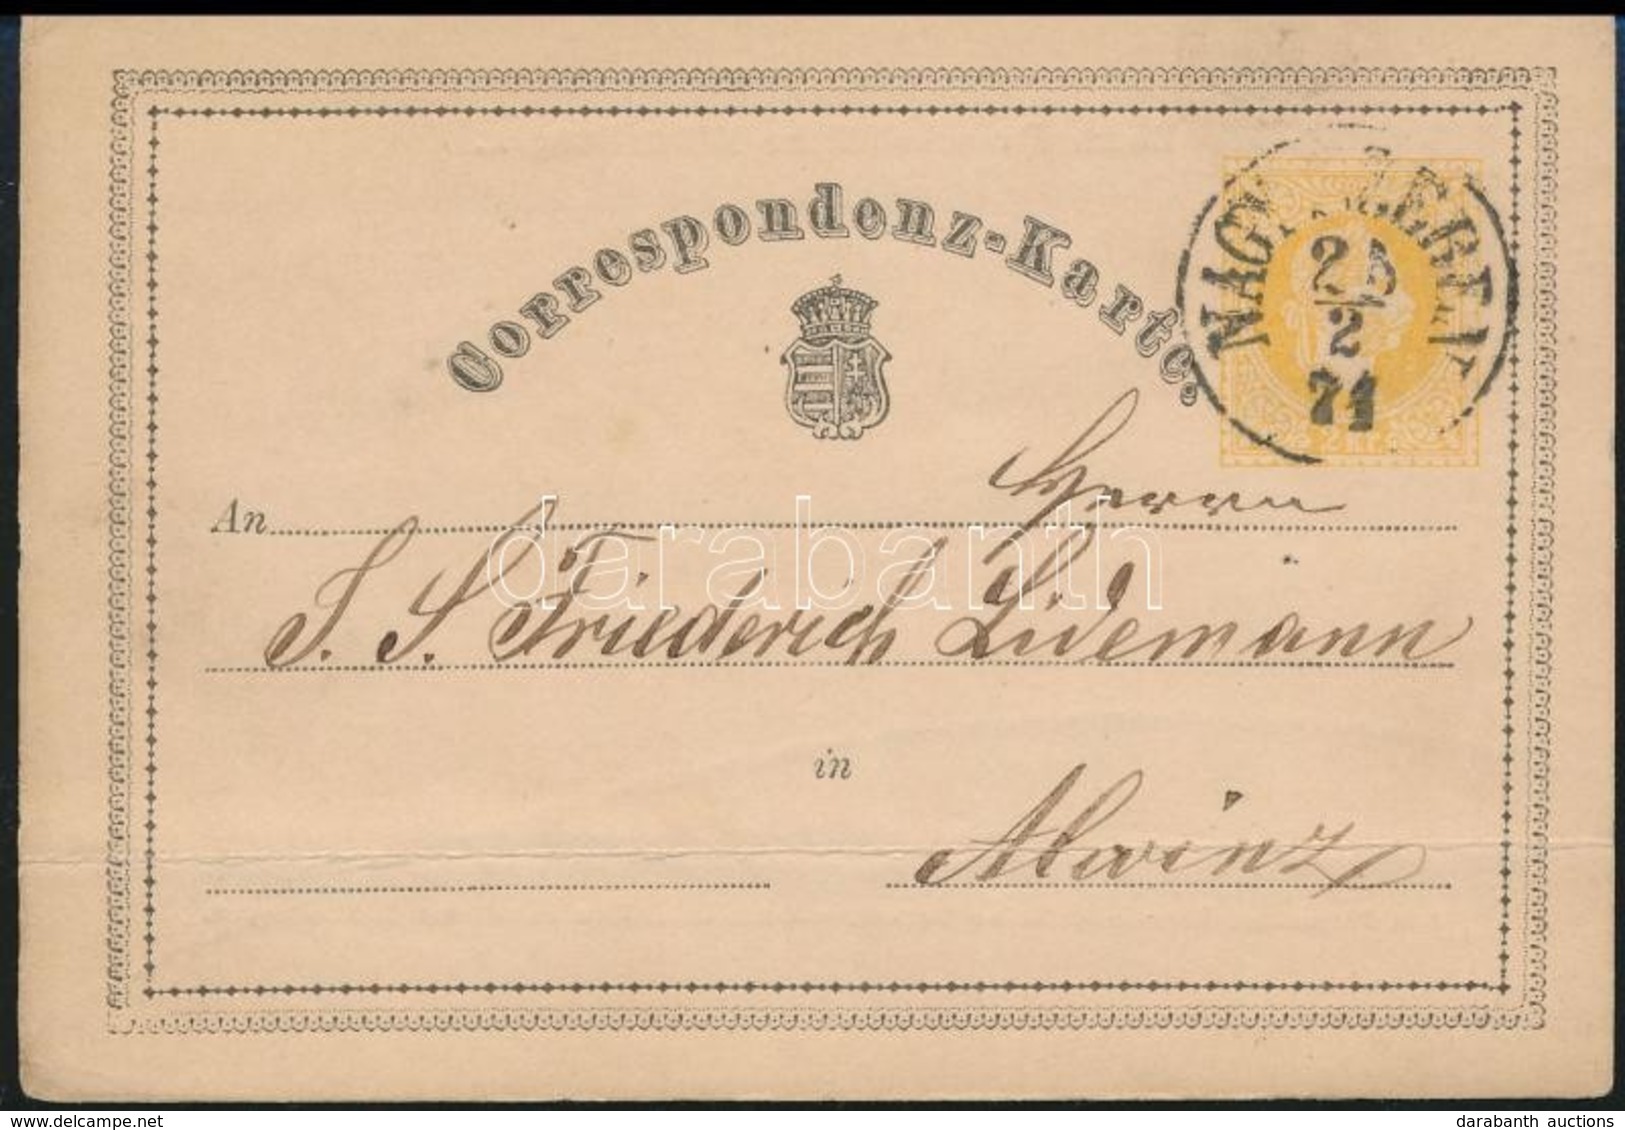 Correspondenz-Karte.
NAGY SZEBEN
2/2
71
An Herrn
J. S. Friederich Lidemann
in
Alwinz
darabanth
delcampe.net
darabanth auctions